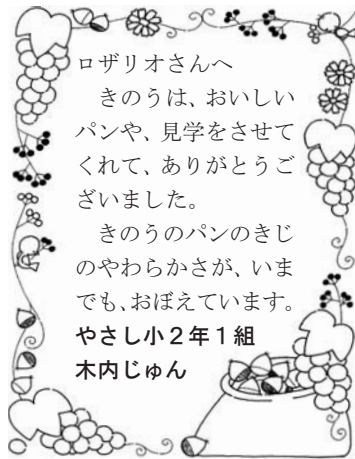 ロザリオさんへ
　きのうは、おいしい
パンや、見学をさせて
くれて、ありがとうご
ざいました。
　きのうのパンのきじ
のやわらかさが、いま
でも、おぼえています。
やさし小２年１組
木内じゅん